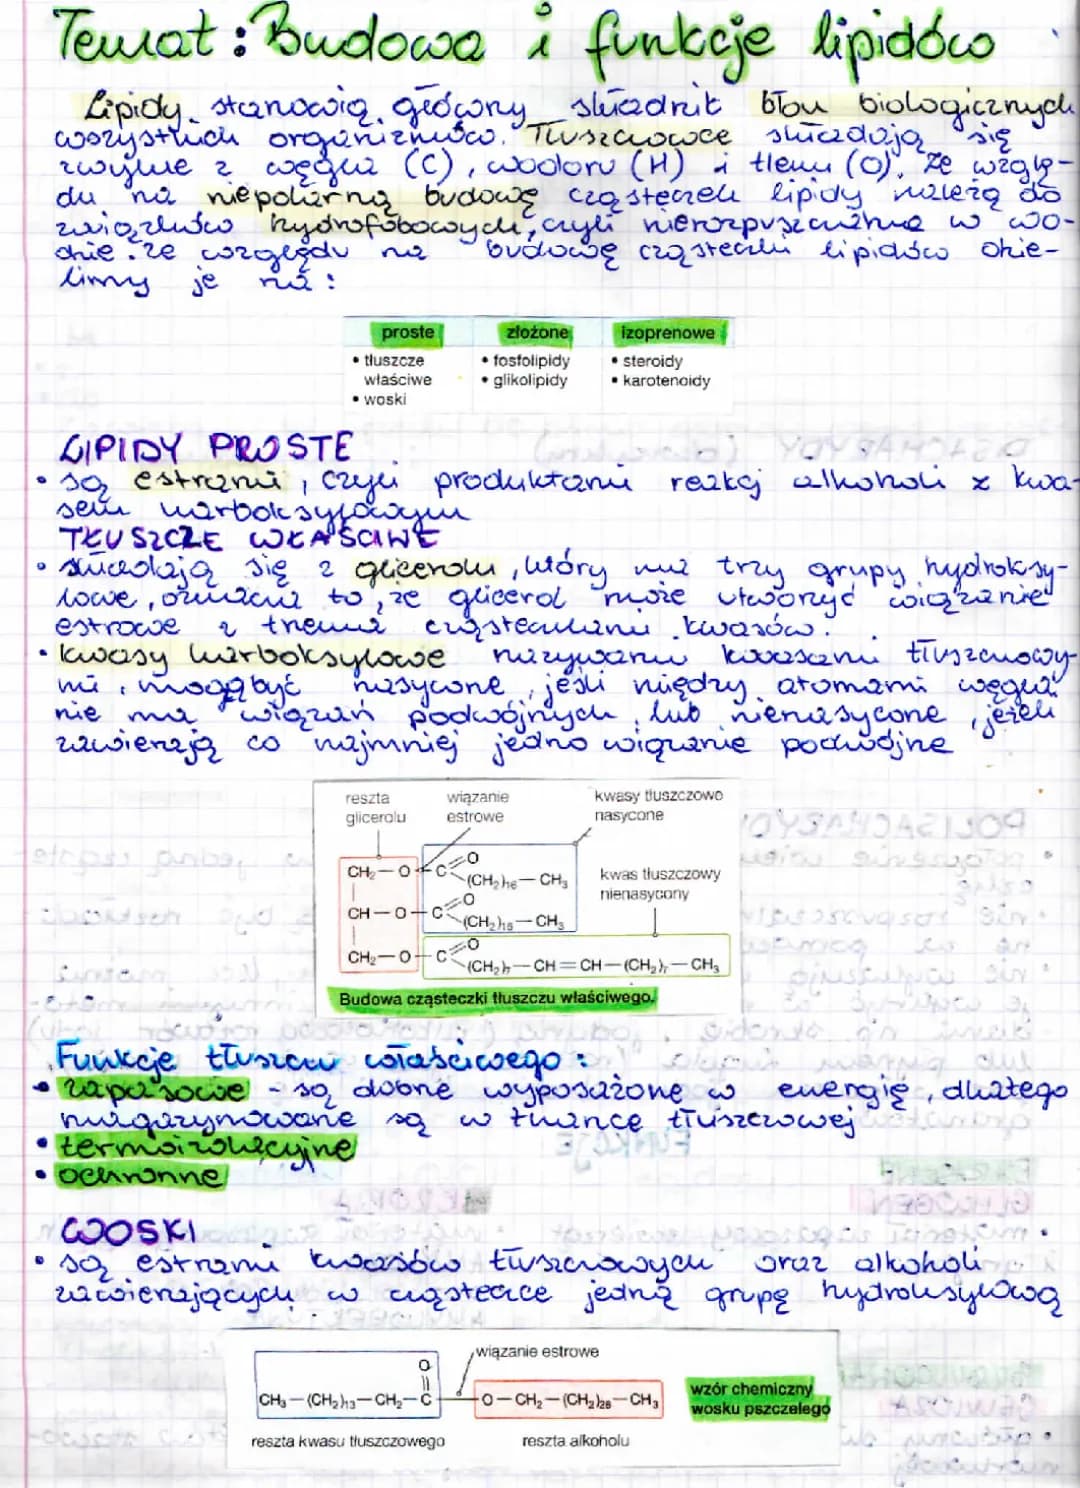 Temat: Budowa i funkcje lipidów
Lipidy stanowią główny składnik błon biologicznych
wszystkich organizmów. Tłuszczowce składają się
zwykle z węgla (C), wodoru (H) i tlenu (O). Ze wzglę-
du na niepolarną budowę cząsteczek lipidy należą do
związków hydrofobowych, czyli nierozpuszczalne w wo-
dzie. Ze względu na budowę cząsteczki lipidów dzie-
limy je na:
proste złożone izoprenowe
• tłuszcze • fosfolipidy • steroidy
właściwe • glikolipidy • karotenoidy
• woski
LIPIDY PROSTE
• są estrami, czyli produktami reakcj alkoholi z kwa-
sem karboksylowym
TŁUSZCZE WŁAŚCIWE
• składają się z glicerolu, który ma trzy grupy hydroksy-
lowe, oznacza to, że glicerol może utworzyć wiązanie
estrowe z trzema cząsteczkami kwasów.
• kwasy karboksylowe nazywamy kwasami tłuszczowy-
mi, mogą być nasycone, jeśli między atomami węgla
nie ma wiązań podwójnych, lub nienasycone, jeżeli
zawierają co najmniej jedno wiązanie podwójne
reszta wiązanie kwasy tłuszczowe
glicerolu estrowe nasycone
CH₂—O—C=O
(CH₂)₁₆—CH₃
kwas tłuszczowy
nienasycony
CH—O—C=O
(CH₂)₁₆—CH₃
CH₂—O—C=O
(CH₂)₇—CH=CH—(CH₂)₇—CH₃
Budowa cząsteczki tłuszczu właściwego.
Funkcje tłuszczu właściwego:
• zapasowe - są dobrze wyposażone w energię, dlatego
magazynowane są w tkance tłuszczowej
• termoizolacyjne
• ochronne
WOSKI
• są estrami kwasów tłuszczowych oraz alkoholi
zawierających w cząsteczce jedną grupę hydroksylową
wiązanie estrowe
O
CH₃—(CH₂)₁₃—CH₂—C—O—CH₂—(CH₂)₂₈—CH₃
wzór chemiczny
wosku pszczelego
reszta kwasu tłuszczowego reszta alkoholu